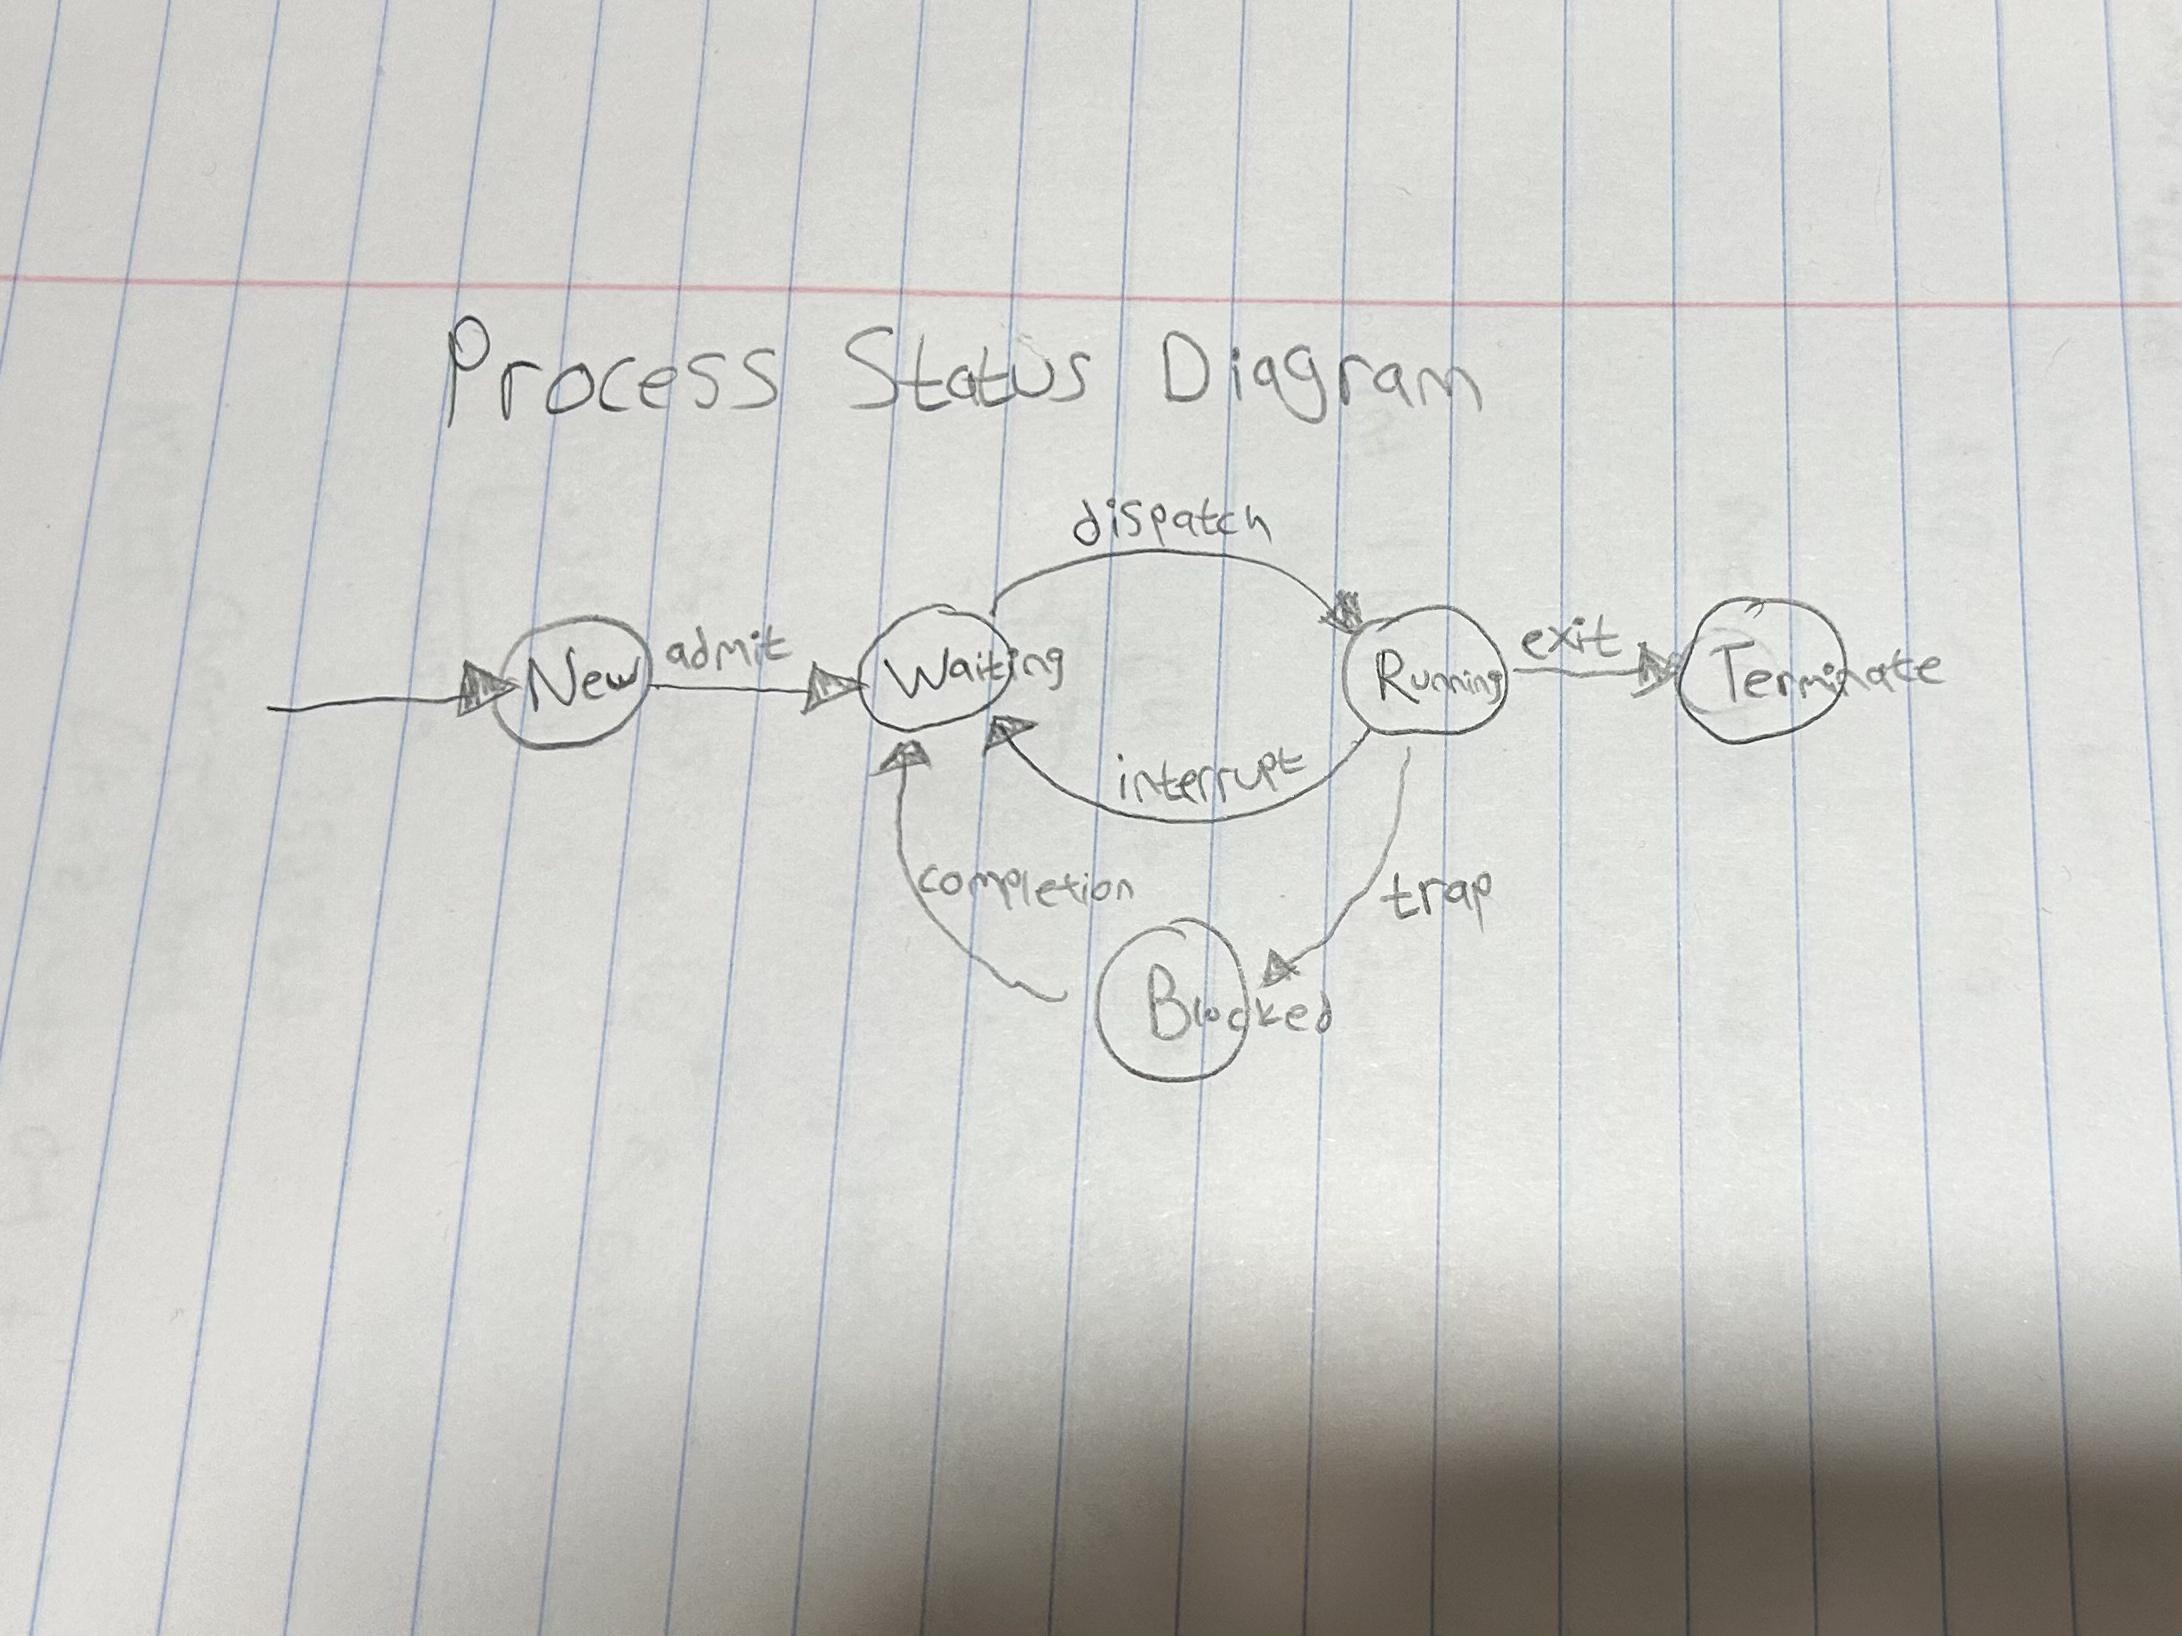 Process Status Diagram
dispatch
New admit Waiting Running exit Terminate
interrupt
completion trap
Blocked